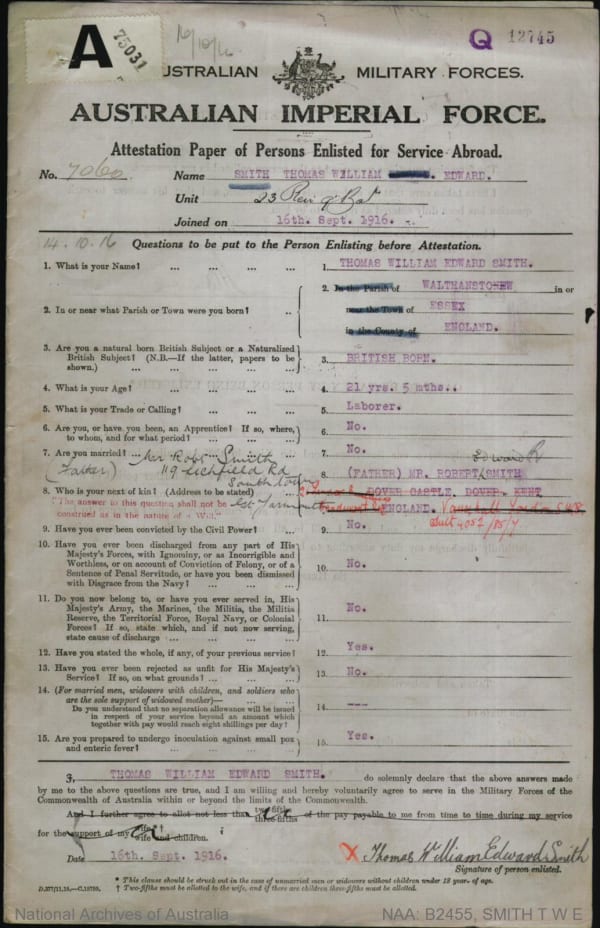 A
75031
16/10/16
Q 12745
AUSTRALIAN MILITARY FORCES.
AUSTRALIAN IMPERIAL FORCE.
Attestation Paper of Persons Enlisted for Service Abroad.
No. 7060 Name SMITH THOMAS WILLIAM EDWARD.
Unit 23
Joined on 16th. Sept. 1916.
14.10.16 Questions to be put to the Person Enlisting before Attestation.
1. What is your Name? ... ... ... ... 1. THOMAS WILLIAM EDWARD SMITH.
2. In or near what Parish or Town were you born? ... 2. In the Parish of WALTHANSTOWEW in or
near the Town of ESSEX
in the County of ENGLAND.
3. Are you a natural born British Subject or a Naturalized
British Subject? (N.B.—If the latter, papers to be
shown.) ... ... ... ... 3. BRITISH BORN.
4. What is your Age? ... ... ... ... 4. 21 yrs. 5 mths..
5. What is your Trade or Calling? ... ... ... 5. Laborer.
6. Are you, or have you been, an Apprentice? If so, where,
to whom, and for what period? ... ... ... 6. No.
7. Are you married? ... 7. No.
Mr Robt Smith
(Father) 119 Lichfield Rd
Southtown
Edward R
8. (FATHER) MR. ROBERT SMITH
8. Who is your next of kin? (Address to be stated) ... DOVER CASTLE, DOVER, KENT
"The answer to this question shall not be
construed as in the nature of a Will." ENGLAND.
9. Have you ever been convicted by the Civil Power? ... 9. No.
10. Have you ever been discharged from any part of His
Majesty's Forces, with Ignominy, or as Incorrigible and
Worthless, or on account of Conviction of Felony, or of a
Sentence of Penal Servitude, or have you been dismissed
with Disgrace from the Navy? ... ... ... 10. No.
11. Do you now belong to, or have you ever served in, His
Majesty's Army, the Marines, the Militia, the Militia
Reserve, the Territorial Force, Royal Navy, or Colonial
Forces? If so, state which, and if not now serving,
state cause of discharge ... ... ... 11. No.
12. Have you stated the whole, if any, of your previous service? 12. Yes.
13. Have you ever been rejected as unfit for His Majesty's
Service? If so, on what grounds? ... ... ... 13. No.
14. (For married men, widowers with children, and soldiers who
are the sole support of widowed mother)—
Do you understand that no separation allowance will be issued
in respect of your service beyond an amount which
together with pay would reach eight shillings per day? 14. ---
15. Are you prepared to undergo inoculation against small pox
and enteric fever? ... ... ... ... 15. Yes.
I, THOMAS WILLIAM EDWARD SMITH. do solemnly declare that the above answers made
by me to the above questions are true, and I am willing and hereby voluntarily agree to serve in the Military Forces of the
Commonwealth of Australia within or beyond the limits of the Commonwealth.
And I further agree to allot not less than two-fifths three-fifths of the pay payable to me from time to time during my service
for the support of my wife wife and children.
Date 16th. Sept. 1916. X Thomas William Edward Smith
Signature of person enlisted.
* This clause should be struck out in the case of unmarried men or widowers without children under 18 years of age.
† Two-fifths must be allotted to the wife, and if there are children three-fifths must be allotted.
National Archives of Australia NAA: B2455, SMITH T W E